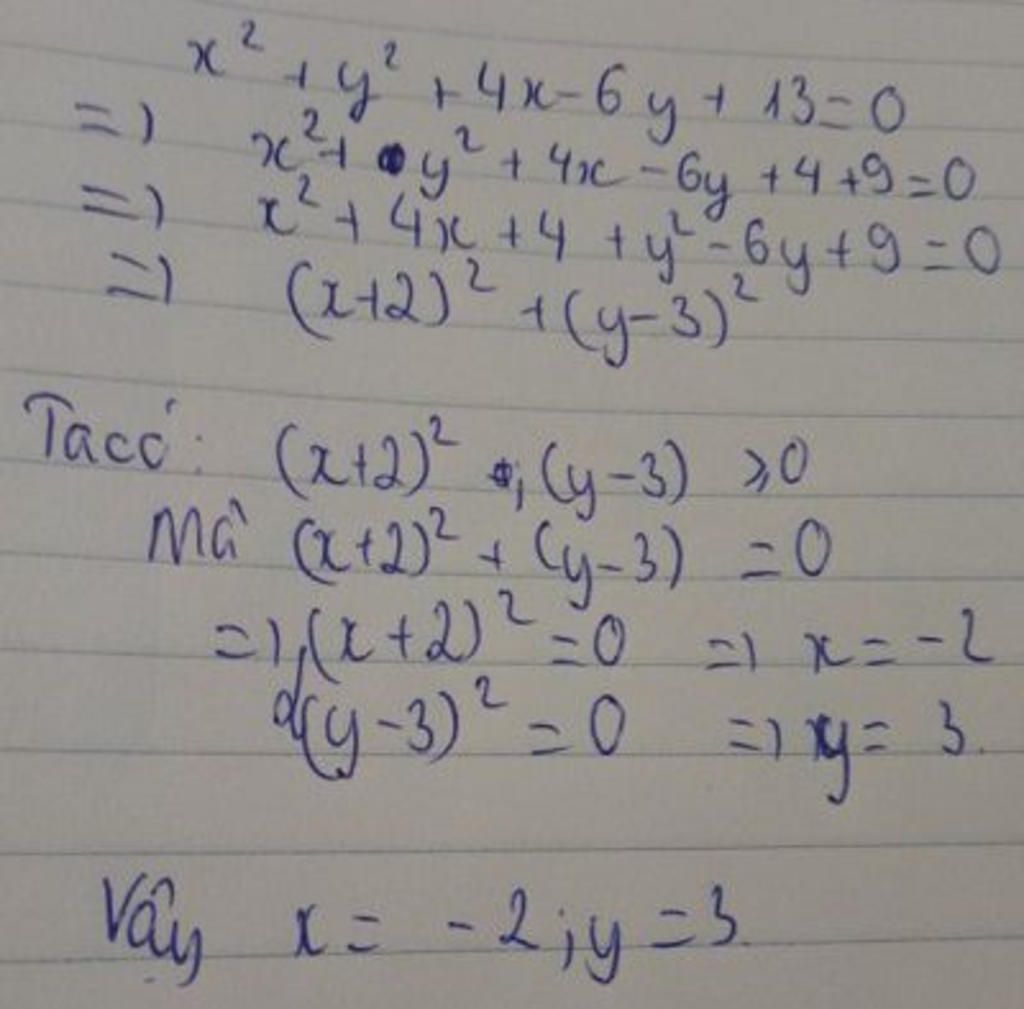 x² + y² + 4x - 6y + 13 = 0
=> x² + y² + 4x - 6y + 4 + 9 = 0
=> x² + 4x + 4 + y² - 6y + 9 = 0
=> (x+2)² + (y-3)²
Ta có: (x+2)² ; (y-3) ⩾ 0
Mà (x+2)² + (y-3) = 0
=> (x+2)² = 0 => x = -2
(y-3)² = 0 => y = 3.
Vậy x = -2 ; y = 3.